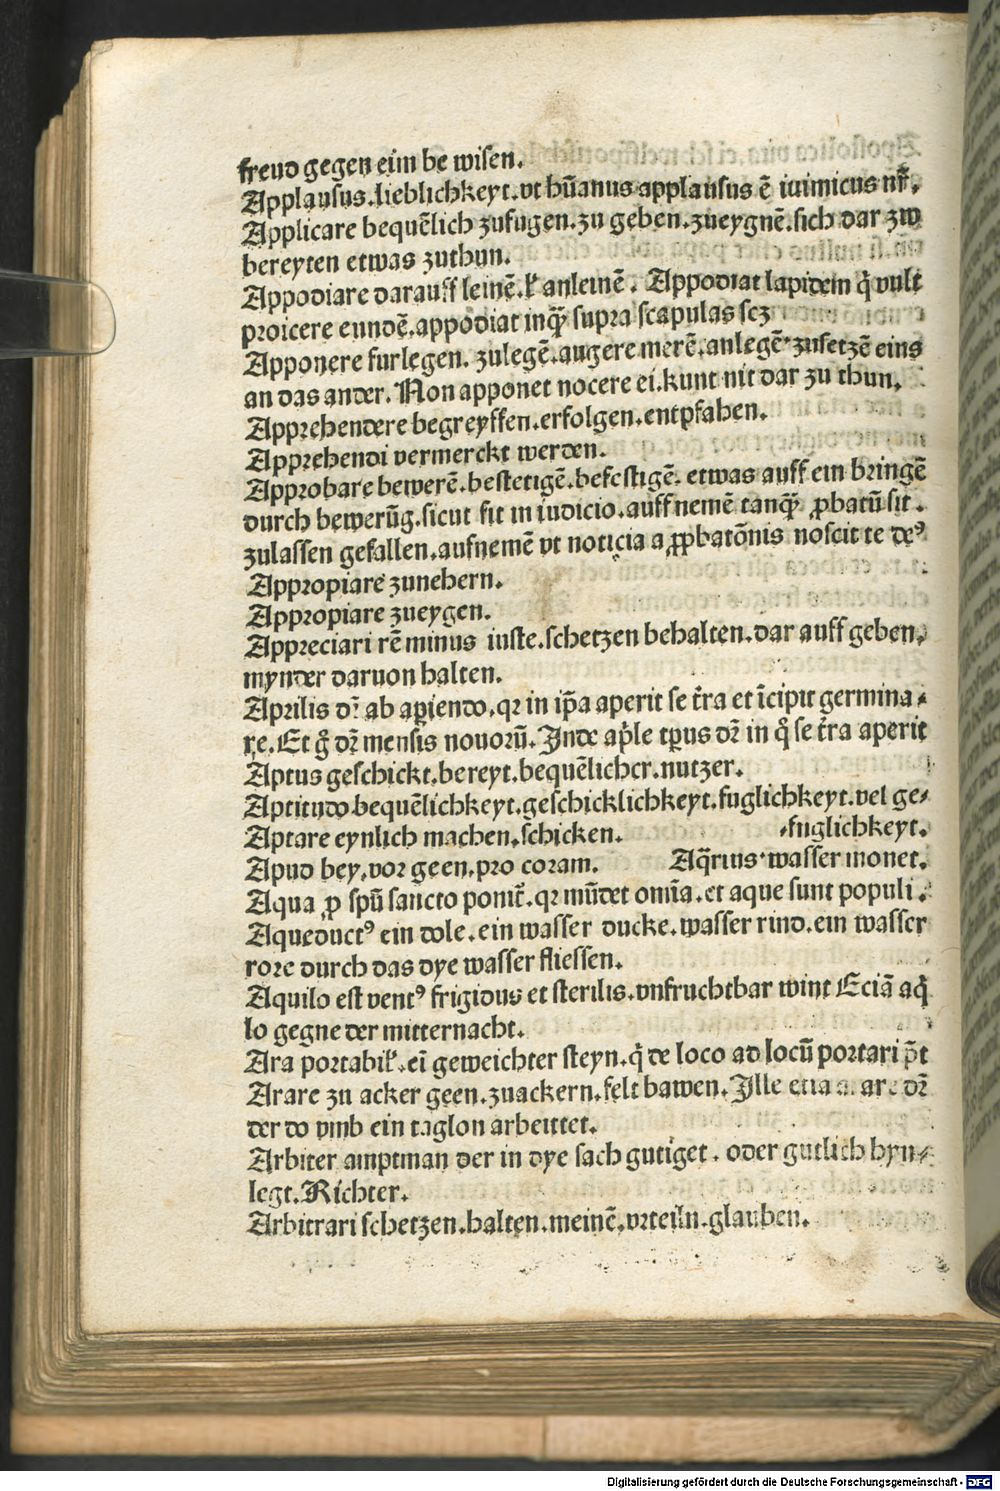 freud gegen eim be wisen.
Applausus.lieblichkeyt.vt hūanus applausus ē inimicus nr̄.
Applicare bequēlich zufugen.zu geben.zueygnē.sich dar zw
bereyten etwas zuthun.
Appodiare darauff leinē.ł anleinē. Appodiat lapidem q̇ vult
proicere eundē.appodiat inqͣ supra scapulas scz
Apponere furlegen. zulegē.augere merē.anlegē.zusetzē eins
an das ander. Non apponet nocere ei.kunt nit dar zu thun.
Apprehendere begreyffen.erfolgen.entpfahen.
Apprehendi vermerckt werden.
Approbare bewerē.bestetigē.befestigē. etwas auff ein bringē
durch bewerūg.sicut fit in iudicio.auff nemē tanqͣ ꝓbatū sit.
zulassen gefallen.aufnemē vt noticia a ꝓpbatōnis noscit te deꝰ
Appropiare zunehern.
Appropiare zueygen.
Appreciari rē minus iuste.schetzen behalten.dar auff geben,
mynder daruon halten.
Aprilis dr̄ ab aꝑiendo.qꝛ in ip̄a aperit se t̄ra et īcipit germina⸗
re.Et g̊ dr̄ mensis nouorū.Inde ap̄le tp̄us dr̄ in q̊ se t̄ra aperit
Aptus geschickt.bereyt.bequēlicher.nutzer.
Aptitudo bequēlichkeyt.geschicklichkeyt.fuglichkeyt.vel ge⸗
Aptare eynlich machen.schicken. ⸗fuglichkeyt.
Apud bey.vor geen.pro coram. Aq̄rius.wasser monet.
Aqua ꝓ spū sancto ponit̄.qꝛ mūdet omīa.et aque sunt populi.
Aqueductꝰ ein dole.ein wasser ducke.wasser rind.ein wasser
rore durch das dye wasser fliessen.
Aquilo est ventꝰ frigidus et sterilis.vnfruchtbar wint Eciā aq̇
lo gegne der mitternacht.
Ara portabił.eī geweichter steyn.q̇ de loco ad locū portari p̄t
Arare zu acker geen.zuackern.felt bawen.Ille dr̄
der do vmb ein taglon arbeittet.
Arbiter amptman der in dye sach gutiget. oder gutlich hyn⸗
legt.Richter.
Arbitrari schetzen.halten.meinē.vrteiln.glauben.
Digitalisierung gefördert durch die Deutsche Forschungsgemeinschaft - DFG